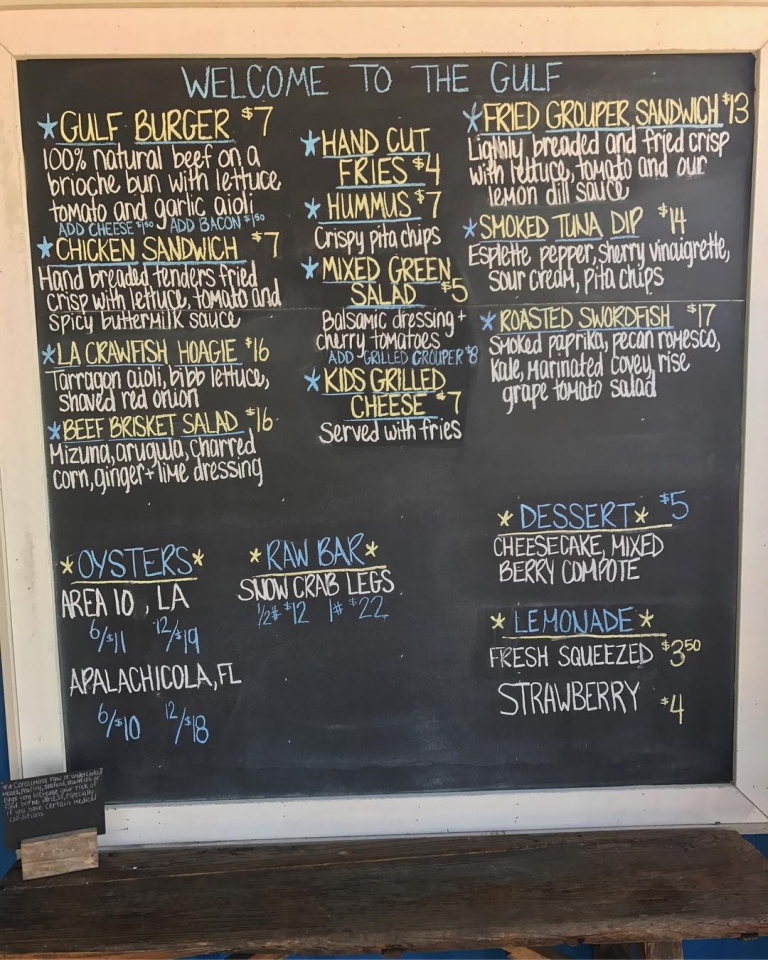 WELCOME TO THE GULF
*GULF BURGER $7
100% natural beef on a
brioche bun with lettuce
tomato and garlic aioli
ADD CHEESE $1.50 ADD BACON $1.50
*CHICKEN SANDWICH $7
Hand breaded tenders fried
crisp with lettuce, tomato and
spicy buttermilk sauce
*LA CRAWFISH HOAGIE $16
Tarragon aioli, bibb lettuce,
shaved red onion
*BEEF BRISKET SALAD $16
Mizuna, arugula, charred
corn, ginger + lime dressing
*HAND CUT
FRIES $4
*HUMMUS $7
Crispy pita chips
*MIXED GREEN
SALAD $5
Balsamic dressing +
cherry tomatoes
ADD GRILLED GROUPER $8
*KIDS GRILLED
CHEESE $7
Served with fries
*FRIED GROUPER SANDWICH $13
Lighly breaded and fried crisp
with lettuce, tomato and our
lemon dill sauce
*SMOKED TUNA DIP $14
Esplette pepper, sherry vinaigrette,
sour cream, pita chips
*ROASTED SWORDFISH $17
Smoked paprika, pecan romesco,
kale, marinated covey, rise
grape tomato salad
*OYSTERS*
AREA 10, LA
6/$11 12/$19
APALACHICOLA, FL
6/$10 12/$18
*RAW BAR*
SNOW CRAB LEGS
1/2# $12 1# $22
*DESSERT* $5
CHEESECAKE, MIXED
BERRY COMPOTE
*LEMONADE*
FRESH SQUEEZED $3.50
STRAWBERRY $4
Consuming raw or undercooked
meats, poultry, seafood, shellfish or
eggs may increase your risk of
food borne illness, especially
if you have certain medical
conditions.